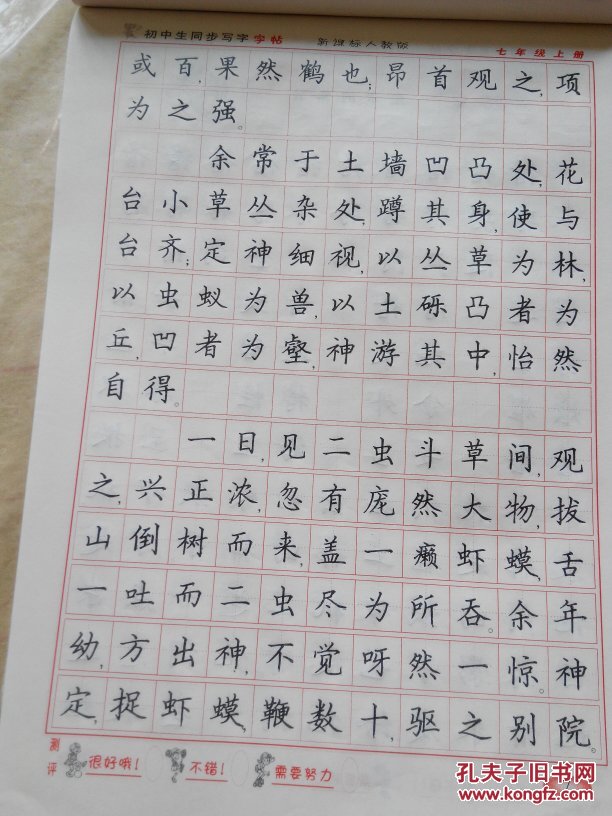 初中生同步写字字帖 新课标人教版 七年级上册
或百,果然鹤也;昂首观之,项
为之强。
余常于土墙凹凸处,花
台小草丛杂处,蹲其身,使与
台齐;定神细视,以丛草为林,
以虫蚁为兽,以土砾凸者为
丘,凹者为壑,神游其中,怡然
自得。
一日,见二虫斗草间,观
之,兴正浓,忽有庞然大物,拔
山倒树而来,盖一癞虾蟆,舌
一吐而二虫尽为所吞。余年
幼,方出神,不觉呀然一惊。神
定,捉虾蟆,鞭数十,驱之别院。
测评 很好哦! 不错! 需要努力
孔夫子旧书网
www.kongfz.com